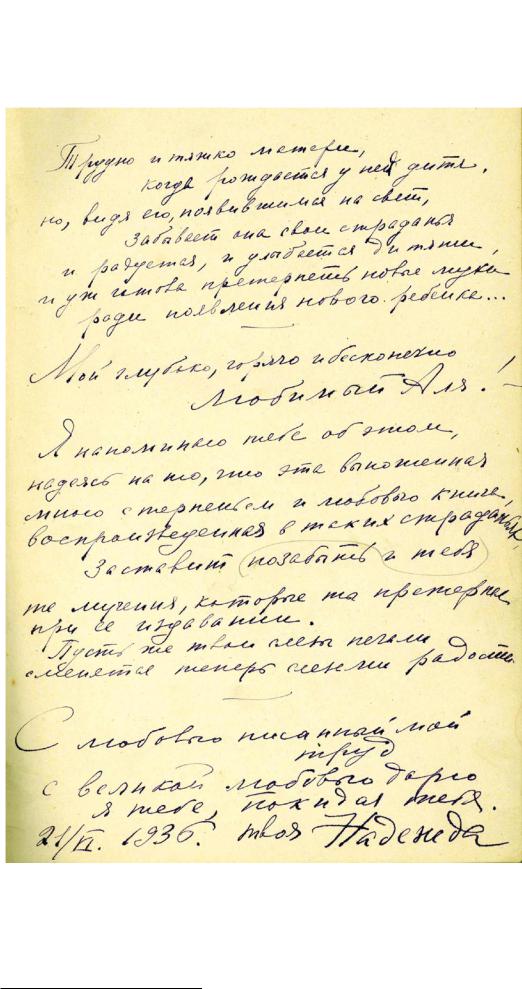 Трудно и тяжко матери,
когда рождается у ней дитя.
но, видя его, появившимся на свет,
забывает она свои страданья
и радуется, и улыбается дитяти,
и уж готова претерпеть новые муки
ради появления нового ребенка...
Мой глубоко, горячо и бесконечно
любимый Аля! —
Я напоминаю тебе об этом,
надеясь на то, что эта выношенная
мною с терпеньем и любовью книга,
воспроизведенная в таких страданьях,
Заставит позабыть и тебя
те мучения, которые ты претерпел
при ее издавании.
Пусть же твои слезы печали
сменятся теперь слезами радости.
С любовью писанный мой
труд
с великой любовью дарю
я тебе, покидая тебя.
21/VI. 1936. твоя Надежда